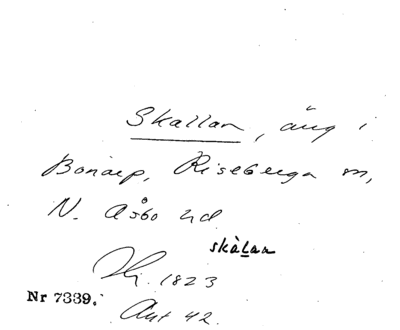 Skallan, äng i
Bonarp, Riseberga sn,
N. Åsbo hd
skàlan
1823
Nr 7339.
Ant 42.